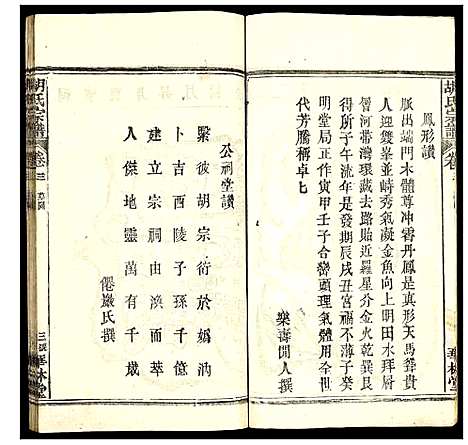 胡氏宗譜
卷
鳳形讚
脈出端門木體尊冲霄丹鳳是真形天馬聳貴
人迎雙峯並峙秀氣凝金魚向上明田水拜
會河帶灣環藏去路貽近羅星分金火乾巽良
得所子午流年是發期辰戌丑宮福不薄子癸
明堂局正作寅甲壬子合巒頭理氣體用全世
代芳騰稱卓匕
樂壽閒人撰
華林堂
公祠堂讚
緊彼胡宗衍於媯汭
卜吉西陵子孫千億
建立宗祠由渙而萃
人傑地靈萬有千歲
僊巖氏撰
胡氏宗譜
卷三
三
華林堂